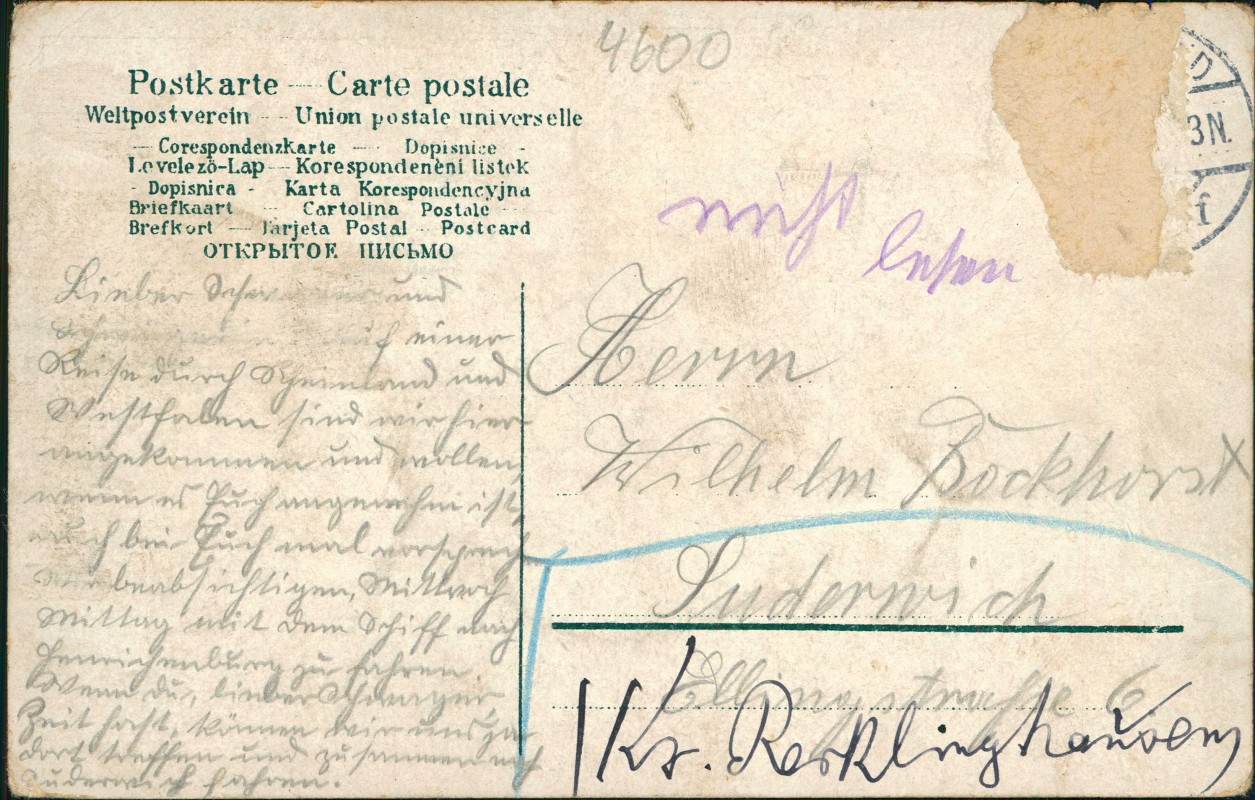 4600
Postkarte — Carte postale
Weltpostverein — Union postale universelle
Corespondenzkarte — Dopisnice
Levelező-Lap — Korespondenční lístek
Dopisnica - Karta Korespondencyjna
Briefkaart — Cartolina Postale
Brefkort — Tarjeta Postal — Postcard
ОТКРЫТОЕ ПИСЬМО
D
3N.
f
nicht
lesen
Lieber und
auf einer
Reise durch Rheinland und
Westfalen sind wir hier
angekommen und wollen,
wenn es Euch angenehm ist,
auch bei Euch mal vorsprech
Wir beabsichtigen, Mittwoch
Mittag mit dem Schiff nach
Henrichenburg zu fahren
Wenn du, lieber Schwager,
Zeit hast, können wir uns
dort treffen und zusammen nach
Suderwich fahren.
Herrn
Wilhelm Bockhorst
Suderwich
Ellingstraße 6
Kr. Recklinghausen